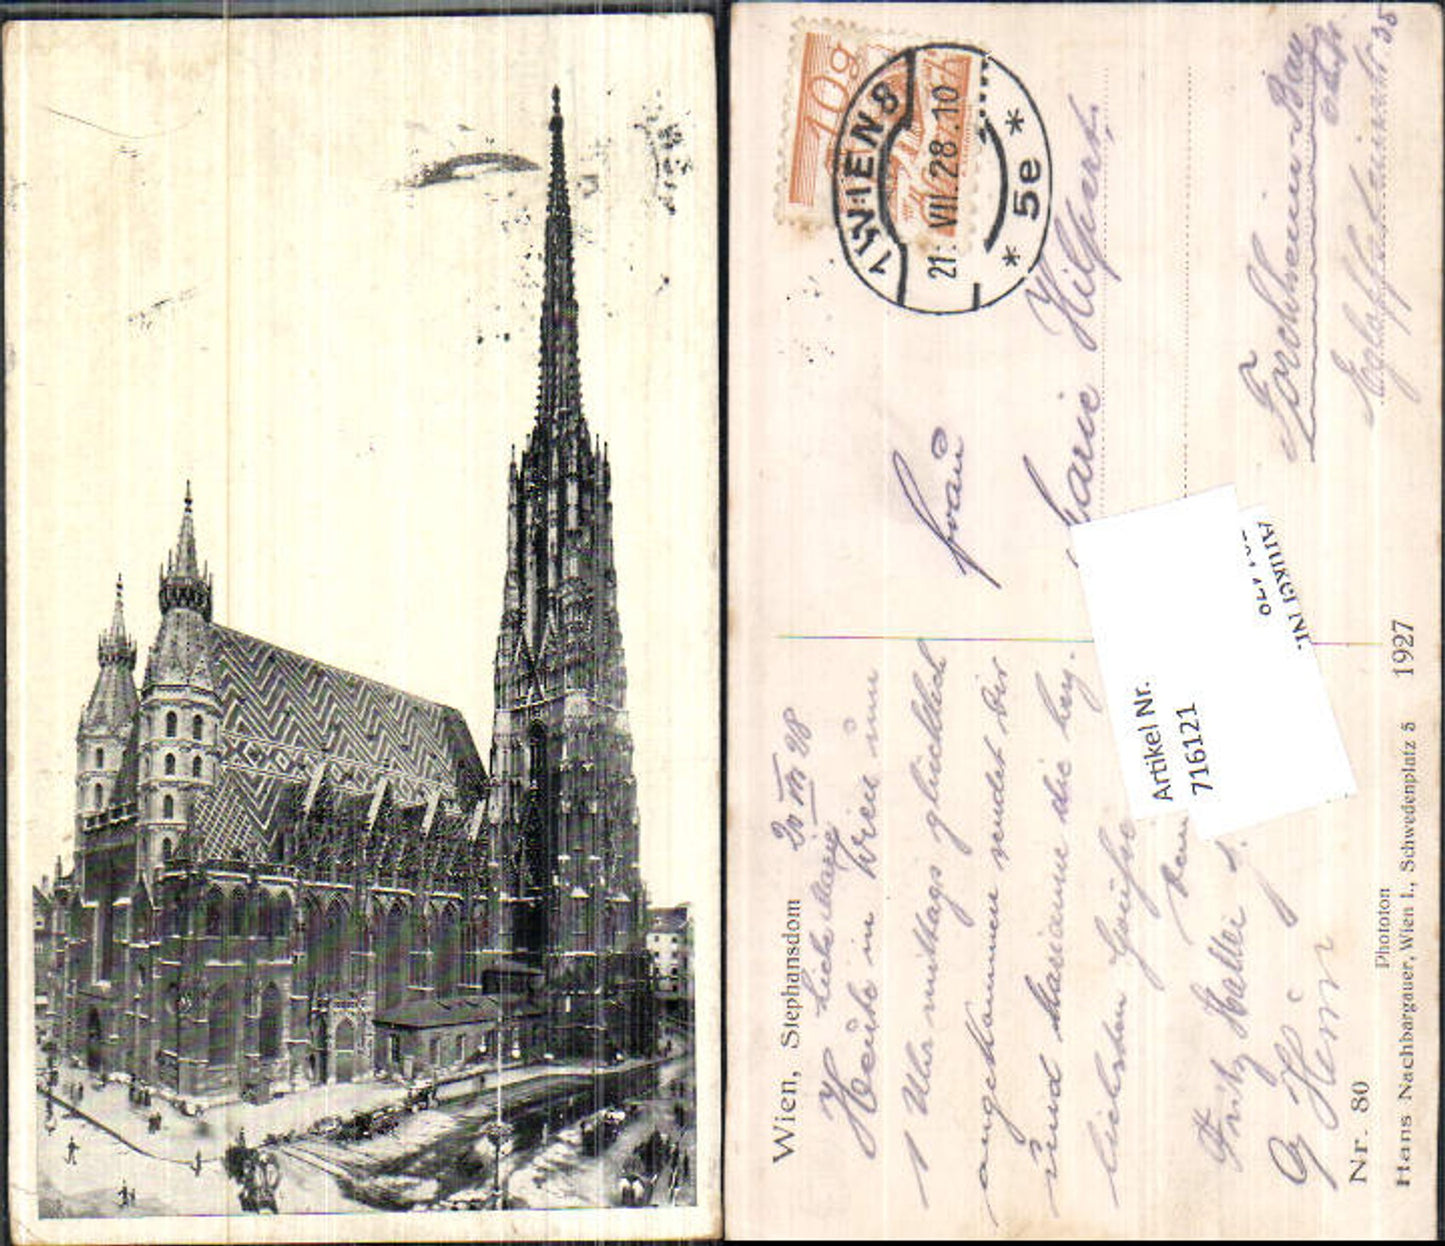 Wien, Stephansdom
20 VII 28
Liebe Mary
Heute in Wien um
1 Uhr mittags glücklich
angekommen sendet dir
und Marianne die herz.
lichsten Grüße
Dein
Fritz
Nr. 80
Phototon
Hans Nachbargauer, Wien I., Schwedenplatz 5 1927
10g
1 WIEN 8
21. VII. 28. 10
* 5e *
Frau
Marie Hilpert
Forchheim Bay
Artikel Nr.
716121